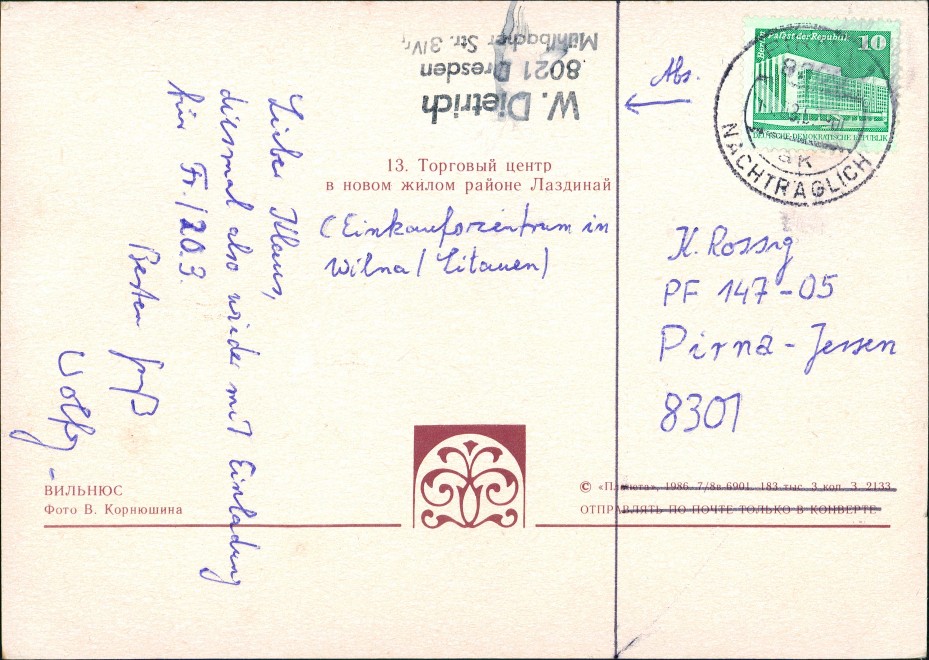 W. Dietrich
8021 Dresden
Mühlbacher Str. 3
Abs.
Berlin Palast der Republik 10
DEUTSCHE DEMOKRATISCHE REPUBLIK
NACHTRÄGLICH
13. Торговый центр
в новом жилом районе Лаздинай
(Einkaufszentrum in
Wilna / Litauen)
Lieber Klaus,
diesmal also wieder mit Einladung
für Fr. / 20.3.
Besten Gruß
Wolfg.
K. Rossig
PF 147-05
Pirna-Jessen
8301
ВИЛЬНЮС
Фото В. Корнюшина
© «Планета», 1986. 7/8в-6901. 183 тыс. 3 коп. З. 2133
ОТПРАВЛЯТЬ ПО ПОЧТЕ ТОЛЬКО В КОНВЕРТЕ